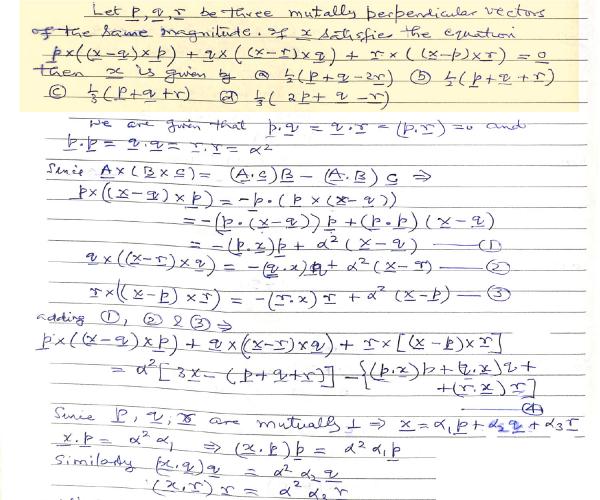 Let p, q, r be three mutally perpendicular vectors
of the same magnitude. If x satisfies the equation
p×((x−q)×p) + q×((x−r)×q) + r×((x−p)×r) = 0
then x is given by (a) ½(p+q−2r) (b) ½(p+q+r)
(c) ⅓(p+q+r) (d) ⅓(2p+q−r)
We are given that p.q = q.r = (p.r) = 0 and
p.p = q.q = r.r = α²
Since A×(B×C) = (A.C)B − (A.B)C ⇒
p×((x−q)×p) = −p.(p×(x−q))
= −(p.(x−q))p + (p.p)(x−q)
= −(p.x)p + α²(x−q) —(1)
q×((x−r)×q) = −(q.x)q + α²(x−r) —(2)
r×((x−p)×r) = −(r.x)r + α²(x−p) —(3)
adding (1), (2) & (3) ⇒
p×((x−q)×p) + q×((x−r)×q) + r×[(x−p)×r]
= α²[3x − (p+q+r)] − {(p.x)p + (q.x)q +
+(r.x)r] —(4)
Since p, q, r are mutually ⊥ ⇒ x = α₁p + α₂q + α₃r
x.p = α²α₁ ⇒ (x.p)p = α²α₁p
Similarly (x.q)q = α²α₂q
(x.r)r = α²α₃r